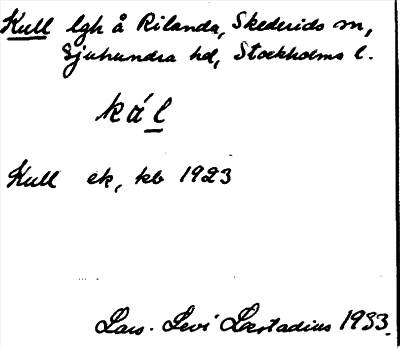 Kull lgh å Rilanda, Skederids sn,
Sjuhundra hd, Stockholms l.
kál
Kull ek, kb 1923
Lars-Levi Læstadius 1933.